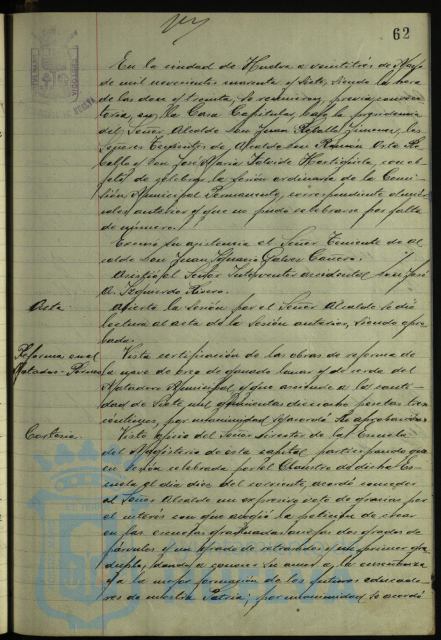 62
En la ciudad de Huelva a veintitrés de Mayo
de mil novecientos cuarenta y siete, siendo la hora
de las doce y treinta, se reunieron, previa convoca
toria, en la Casa Capitular, bajo la presidencia
del Señor Alcalde Don Juan Rebollo Jimenez, los
Señores Tenientes de Alcalde Don Ramón Orta Re
bollo y Don José María Hortigüela, con el
fin de celebrar la sesión ordinaria de la Comi
sión Municipal Permanente, correspondiente al miér
coles anterior y que no pudo celebrarse por falta
de número.
Excusó su asistencia el Señor Teniente de Al
calde Don Juan Ignacio Galvez Cañero.
Asistió el Señor Interventor accidental Don José
A. Izquierdo Rivero.
Acta.
Abierta la sesión por el Señor Alcalde se dió
lectura al acta de la sesión anterior, siendo apro
bada.
Reforma en el
Matadero
Vista certificación de las obras de reforma de
la nave de oreo de ganado lanar y de cerda del
Matadero Municipal y que asciende a la canti
dad de siete mil quinientas dieciocho pesetas
céntimos, por unanimidad se acordó su aprobación.
Cortesía.
Visto oficio del Señor Director de la Escuela
del Magisterio de esta capital participando que
en sesión celebrada por el Claustro de dicha Es
cuela el día diez del corriente, acordó conceder
al Señor Alcalde un expresivo voto de gracias por
el interés con que acogió la petición de crear
en las escuelas graduadas anejas dos grados de
párvulos y un grado de retrasados y un primer gra
do, dando a conocer su amor a la enseñanza
y a la mejor formación de los futuros educado
res de nuestra Patria; por unanimidad se acordó